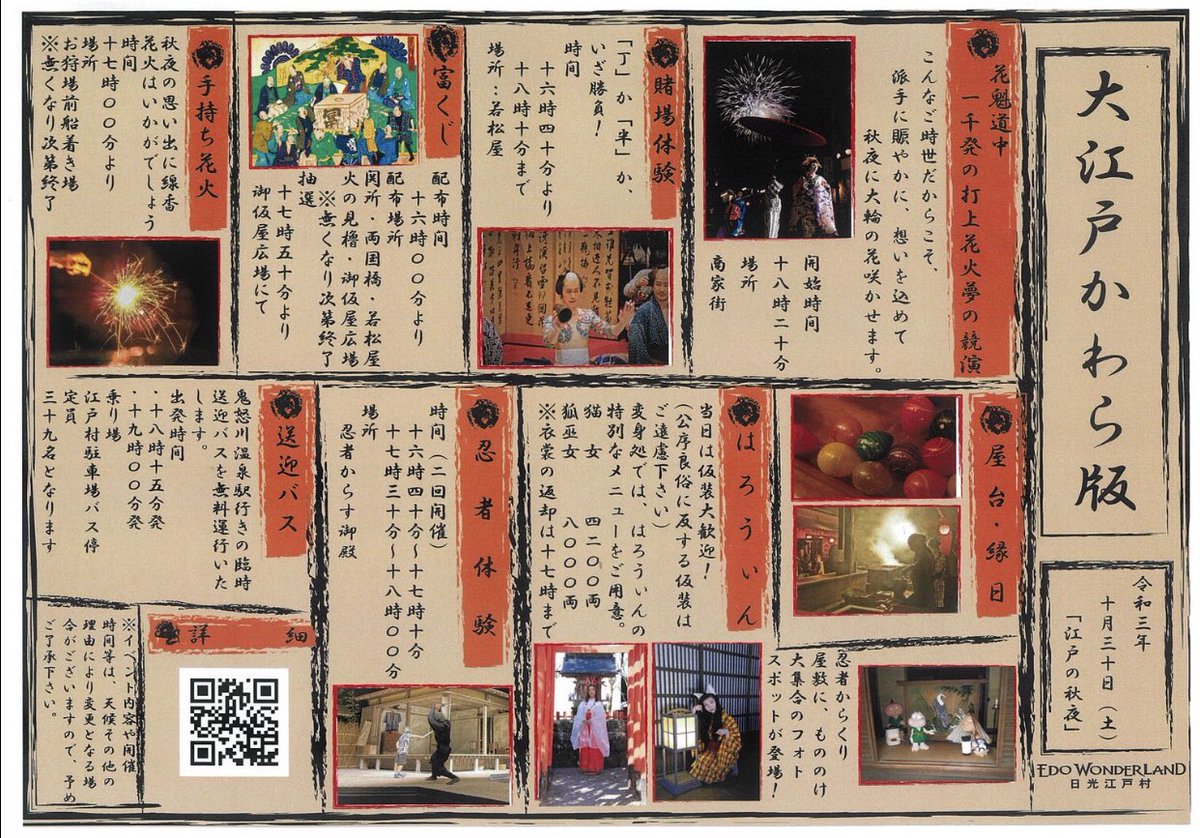 大江戸かわら版
令和三年
十月三十日（土）
「江戸の秋夜」
EDO WONDERLAND
日光江戸村
花魁道中
一千発の打上花火夢の競演
こんなご時世だからこそ、
派手に賑やかに、想いを込めて
秋夜に大輪の花咲かせます。
開始時間
十八時二十分
場所
商家街
賭場体験
「丁」か「半」か、
いざ勝負！
時間
十六時四十分より
十八時十分まで
場所：若松屋
富くじ
配布時間
十六時００分より
配布場所
関所・両国橋・若松屋
火の見櫓・御仮屋広場
※無くなり次第終了
抽選
十七時五十分より
御仮屋広場にて
手持ち花火
秋夜の思い出に線香
花火はいかがでしょう
時間
十七時００分より
場所
お狩場前船着き場
※無くなり次第終了
屋台・縁日
忍者からくり
屋敷に、もののけ
大集合のフォト
スポットが登場！
はろうぃん
当日は仮装大歓迎！
（公序良俗に反する仮装は
ご遠慮下さい）
変身処では、はろうぃんの
特別なメニューをご用意。
猫女　四二００両
狐巫女　八０００両
※衣裳の返却は十七時まで
忍者体験
時間（二回開催）
十六時四十分〜十七時十分
十七時三十分〜十八時００分
場所
忍者からす御殿
送迎バス
鬼怒川温泉駅行きの臨時
送迎バスを無料運行いた
します。
出発時間
・十八時十五分発
・十九時００分発
乗り場
江戸村駐車場バス停
定員
三十九名となります
詳細
※イベント内容や開催
時間等は、天候その他の
理由により変更となる場
合がございますので、予め
ご了承下さい。